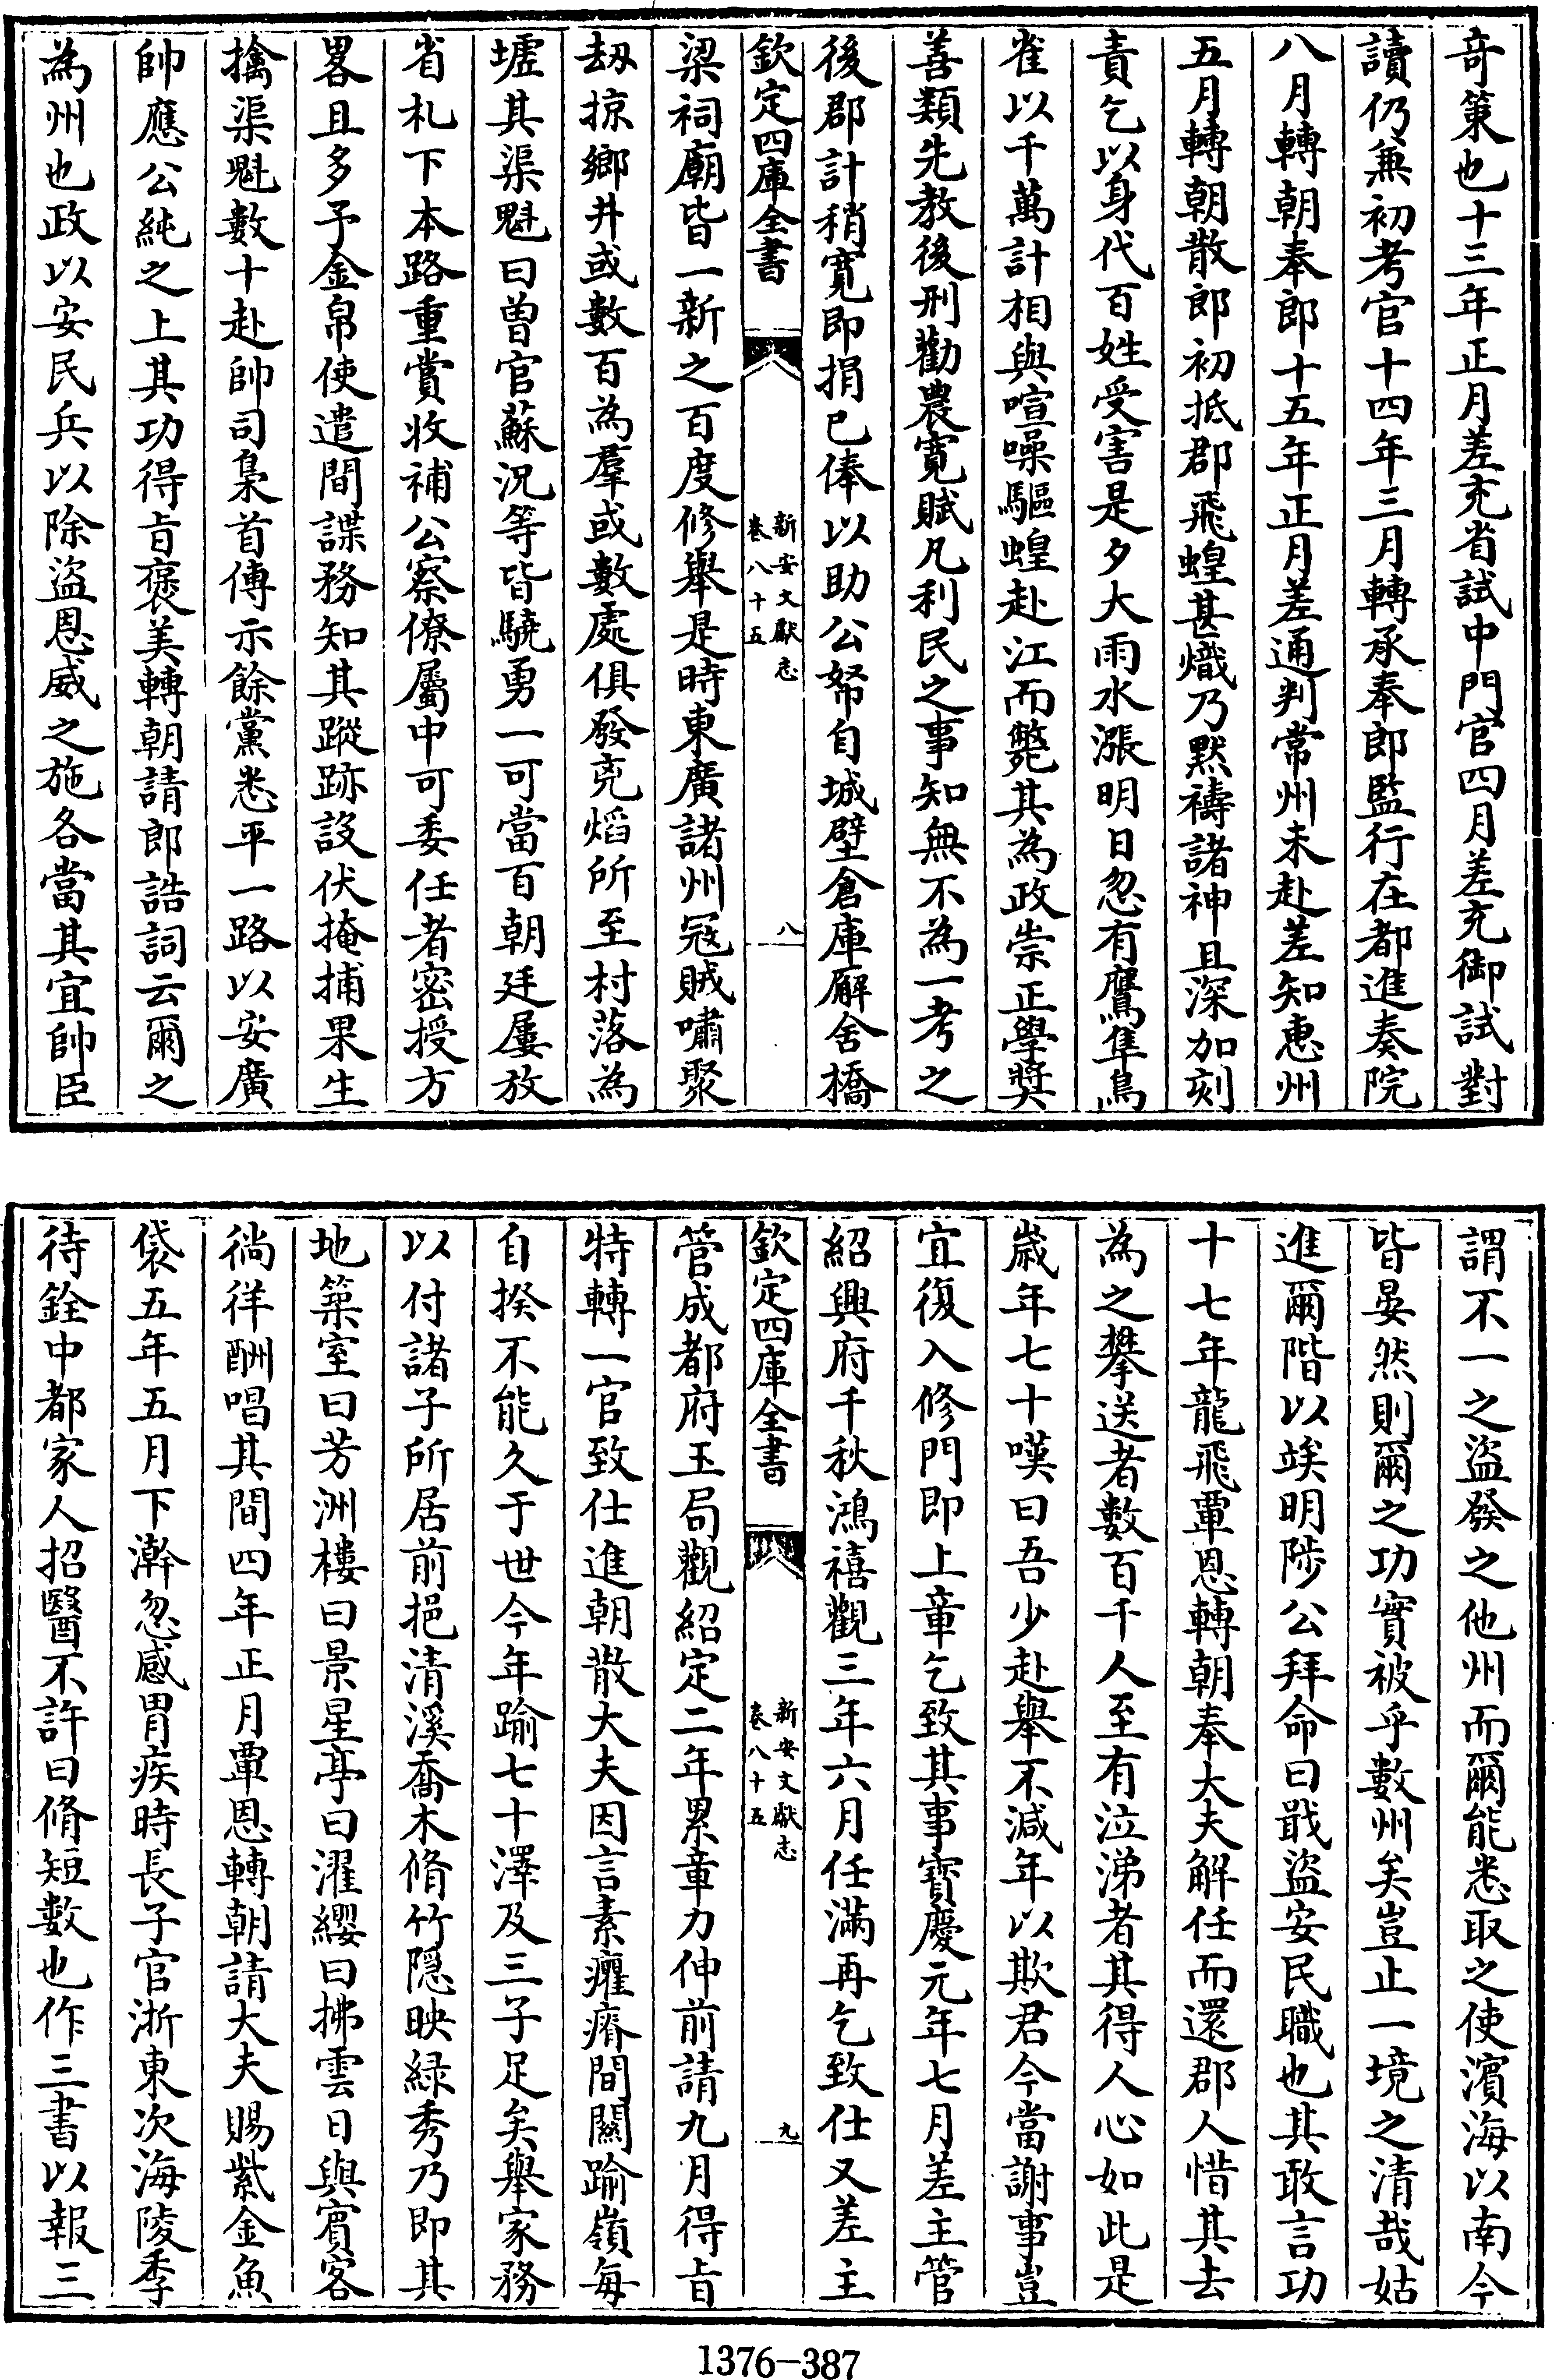 奇策也十三年正月差充省試中門官四月差充御試對
讀仍兼初考官十四年三月轉承奉郎監行在都進奏院
八月轉朝奉郎十五年正月差通判常州未赴差知惠州
五月轉朝散郎初抵郡飛蝗甚熾乃默禱諸神且深加刻
責乞以身代百姓受害是夕大雨水漲明日忽有鷹隼鳥
雀以千萬計相與喧噪驅蝗赴江而斃其為政崇正學奬
善類先教後刑勸農寛賦凡利民之事知無不為一考之
後郡計稍寛即捐已俸以助公帑自城壁倉庫廨舍橋
欽定四庫全書
新安文獻志
卷八十五
八
梁祠廟皆一新之百度修舉是時東廣諸州㓂賊嘯聚
刼掠鄉井或數百為羣或數處俱發兇熖所至村落為
墟其渠魁曰曽官蘇況等皆驍勇一可當百朝廷屢放
省札下本路重賞收補公察僚屬中可委任者密授方
畧且多予金帛使遣間諜務知其蹤跡設伏掩捕果生
擒渠魁數十赴帥司梟首傳示餘黨悉平一路以安廣
帥應公純之上其功得㫖褒美轉朝請郎誥詞云爾之
為州也政以安民兵以除盜恩威之施各當其宜帥臣
謂不一之盜發之他州而爾能悉取之使濱海以南今
皆晏然則爾之功實被乎數州矣豈止一境之清哉姑
進爾階以竢明陟公拜命曰戢盜安民職也其敢言功
十七年龍飛覃恩轉朝奉大夫解任而還郡人惜其去
為之攀送者數百千人至有泣涕者其得人心如此是
歲年七十嘆曰吾少赴舉不減年以欺君今當謝事豈
宜復入修門即上章乞致其事寳慶元年七月差主管
紹興府千秋鴻禧觀三年六月任滿再乞致仕又差主
欽定四庫全書
新安文獻志
卷八十五
九
管成都府玉局觀紹定二年累章力伸前請九月得㫖
特轉一官致仕進朝散大夫因言素癯瘠間關踰嶺每
自揆不能久于世今年踰七十澤及三子足矣舉家務
以付諸子所居前挹清溪喬木脩竹隠映緑秀乃即其
地築室曰芳洲樓曰景星亭曰濯纓曰拂雲日與賓客
徜徉酬唱其間四年正月覃恩轉朝請大夫賜紫金魚
袋五年五月下澣忽感胃疾時長子官浙東次海陵季
待銓中都家人招醫不許曰脩短數也作三書以報三
1376-387